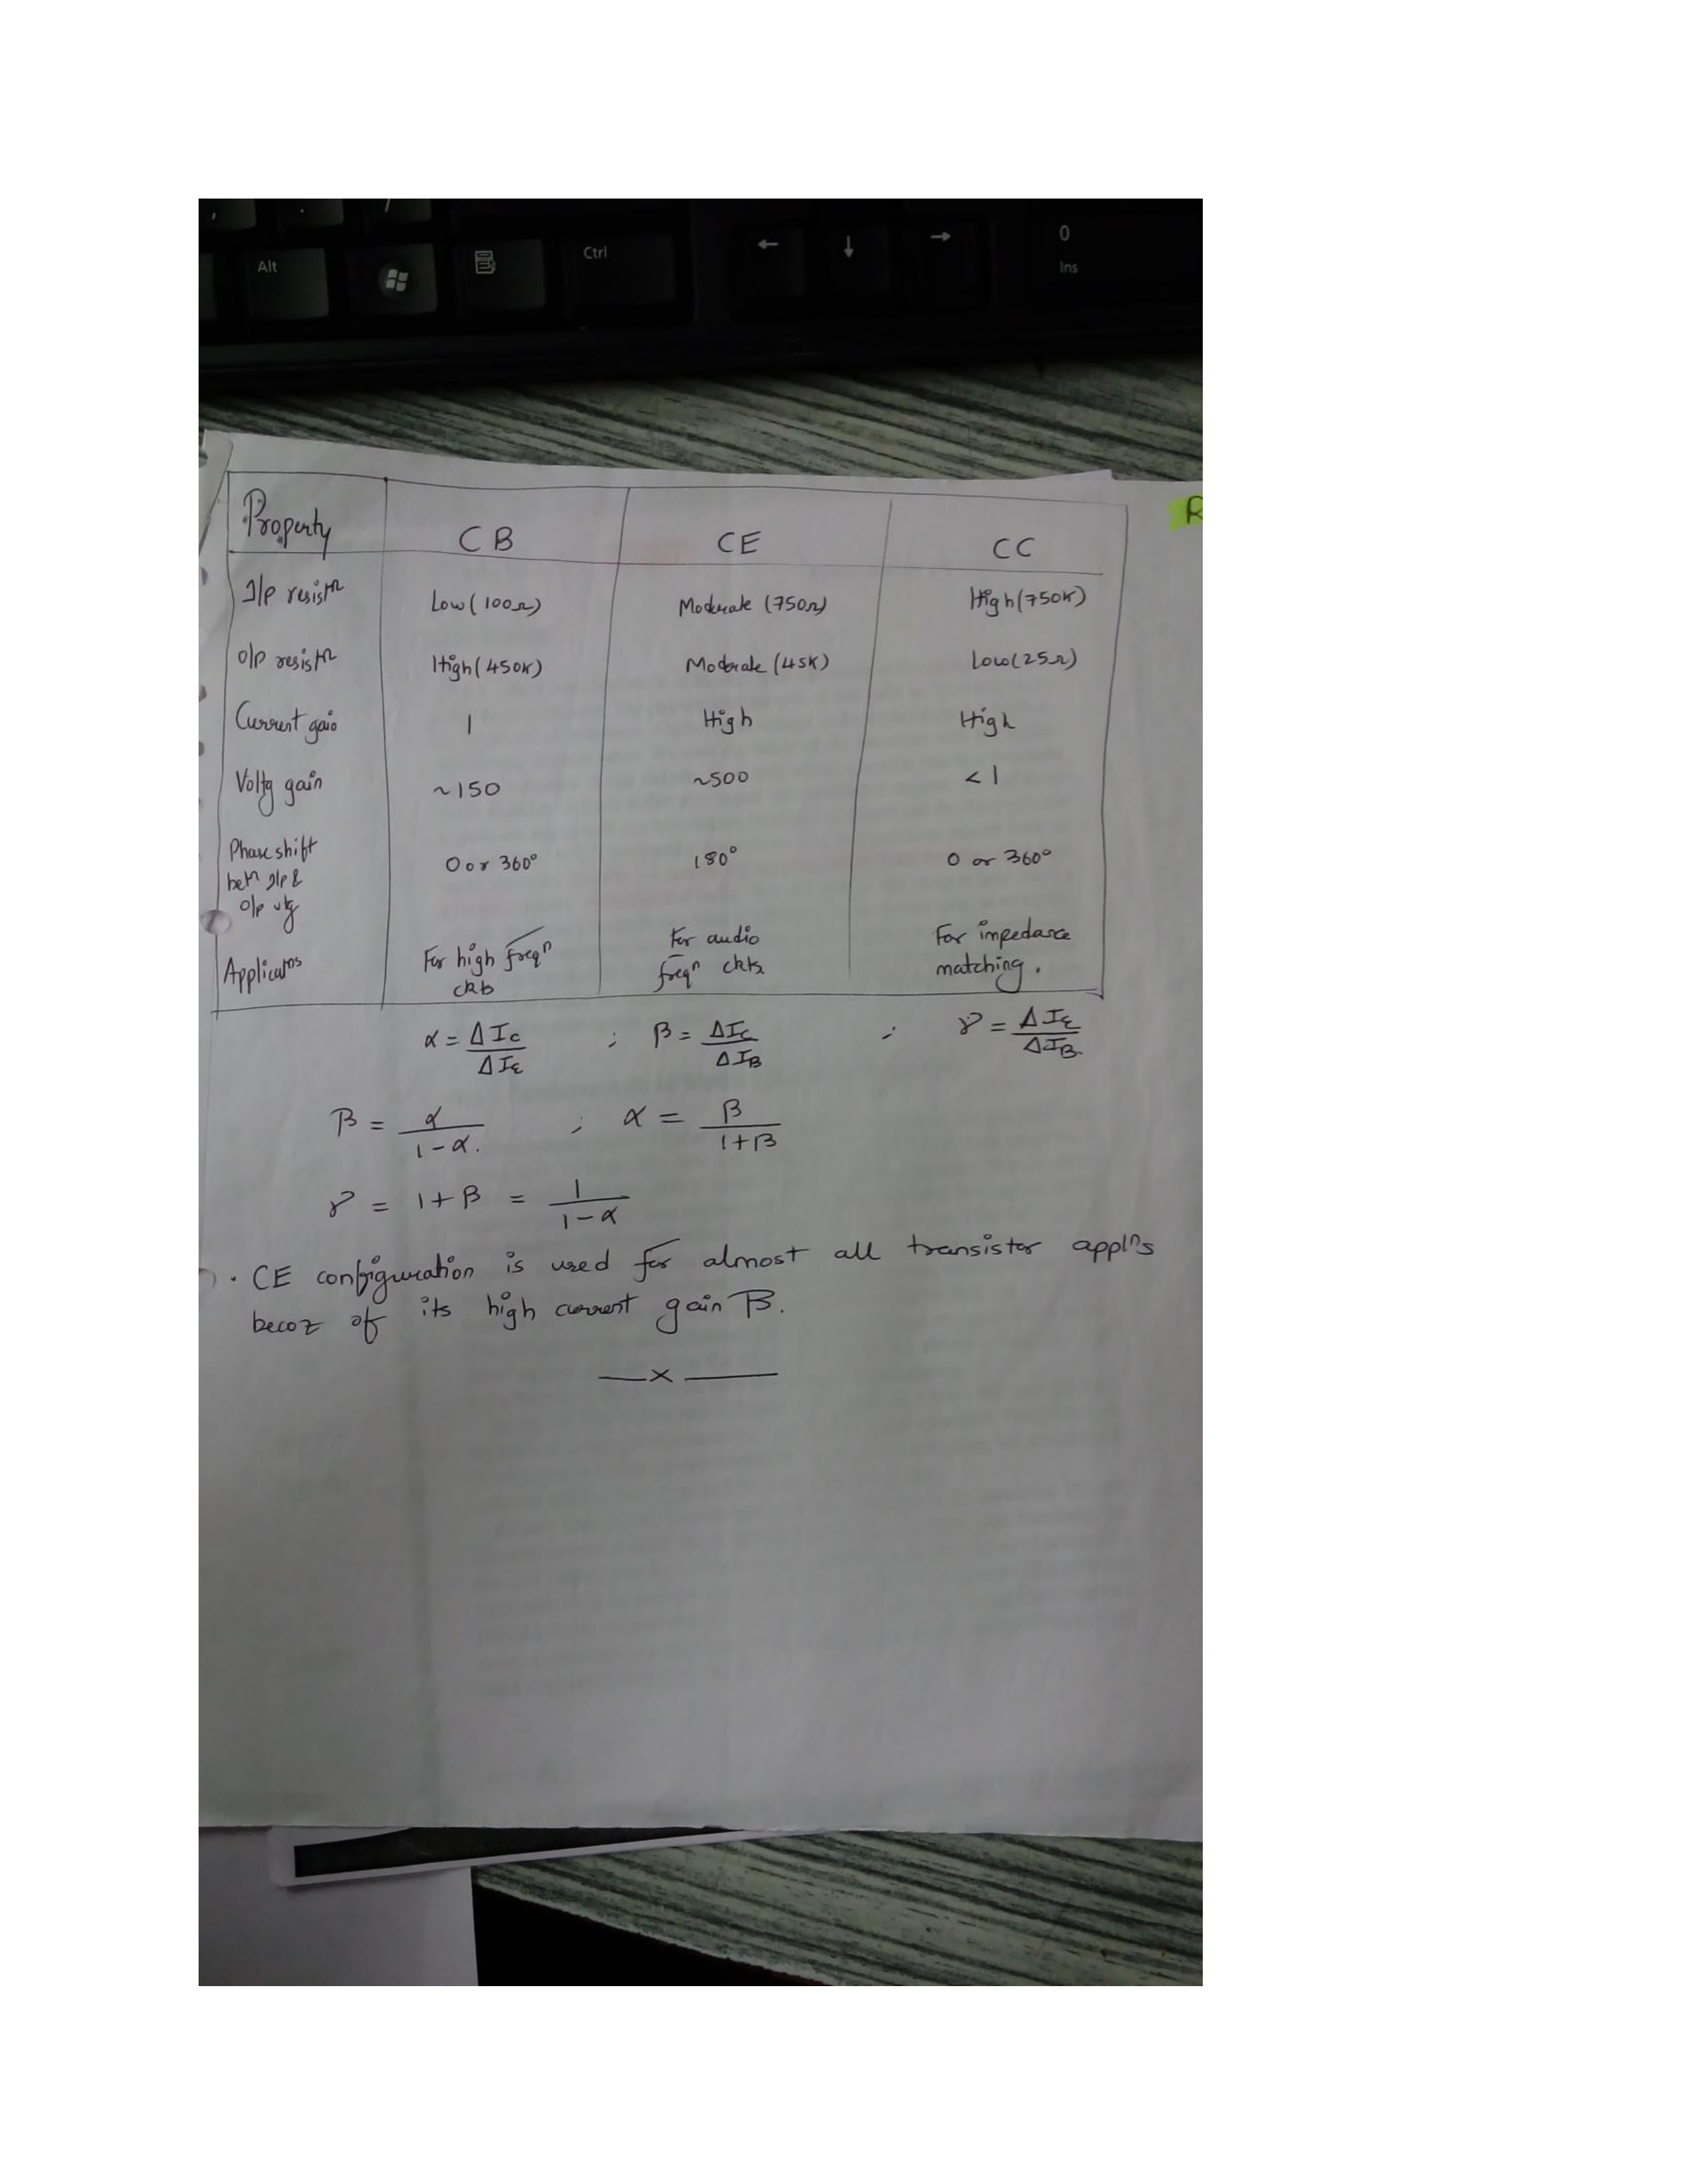 , . /
Alt Ctrl ← ↓ → 0
Ins
R
Property CB CE CC
I/p resistn Low (100Ω) Moderate (750Ω) High (750K)
O/p resistn High (450K) Moderate (45K) Low (25Ω)
Current gain 1 High High
Voltg gain ~150 ~500 <1
Phase shift
betn I/p & 0 or 360° 180° 0 or 360°
o/p vtg
Applicatns For high freqn For audio For impedance
ckts freqn ckts. matching.
α = ΔIC/ΔIE ; β = ΔIC/ΔIB ; γ = ΔIE/ΔIB.
β = α/1-α. ; α = β/1+β
γ = 1+β = 1/1-α
· CE configuration is used for almost all transistor applns
becoz of its high current gain β.
—x—